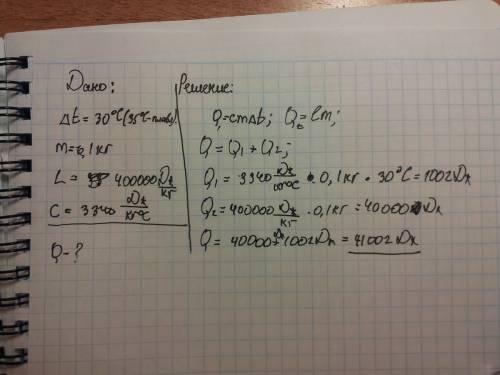 Дано:
Δt = 30°C (35°C-
m=0,1кг
L = 400000 Дж/кг
C = 3340 Дж/кг°C
Q-?
Решение:
Q₁=cmΔt; Q₂=Lm;
Q = Q₁ + Q₂;
Q₁ = 3340 Дж/кг°C • 0,1кг • 30°C = 1002Дж
Q₂ = 400000 Дж/кг • 0,1кг = 40000 Дж
Q = 40000+1002Дж = 41002Дж